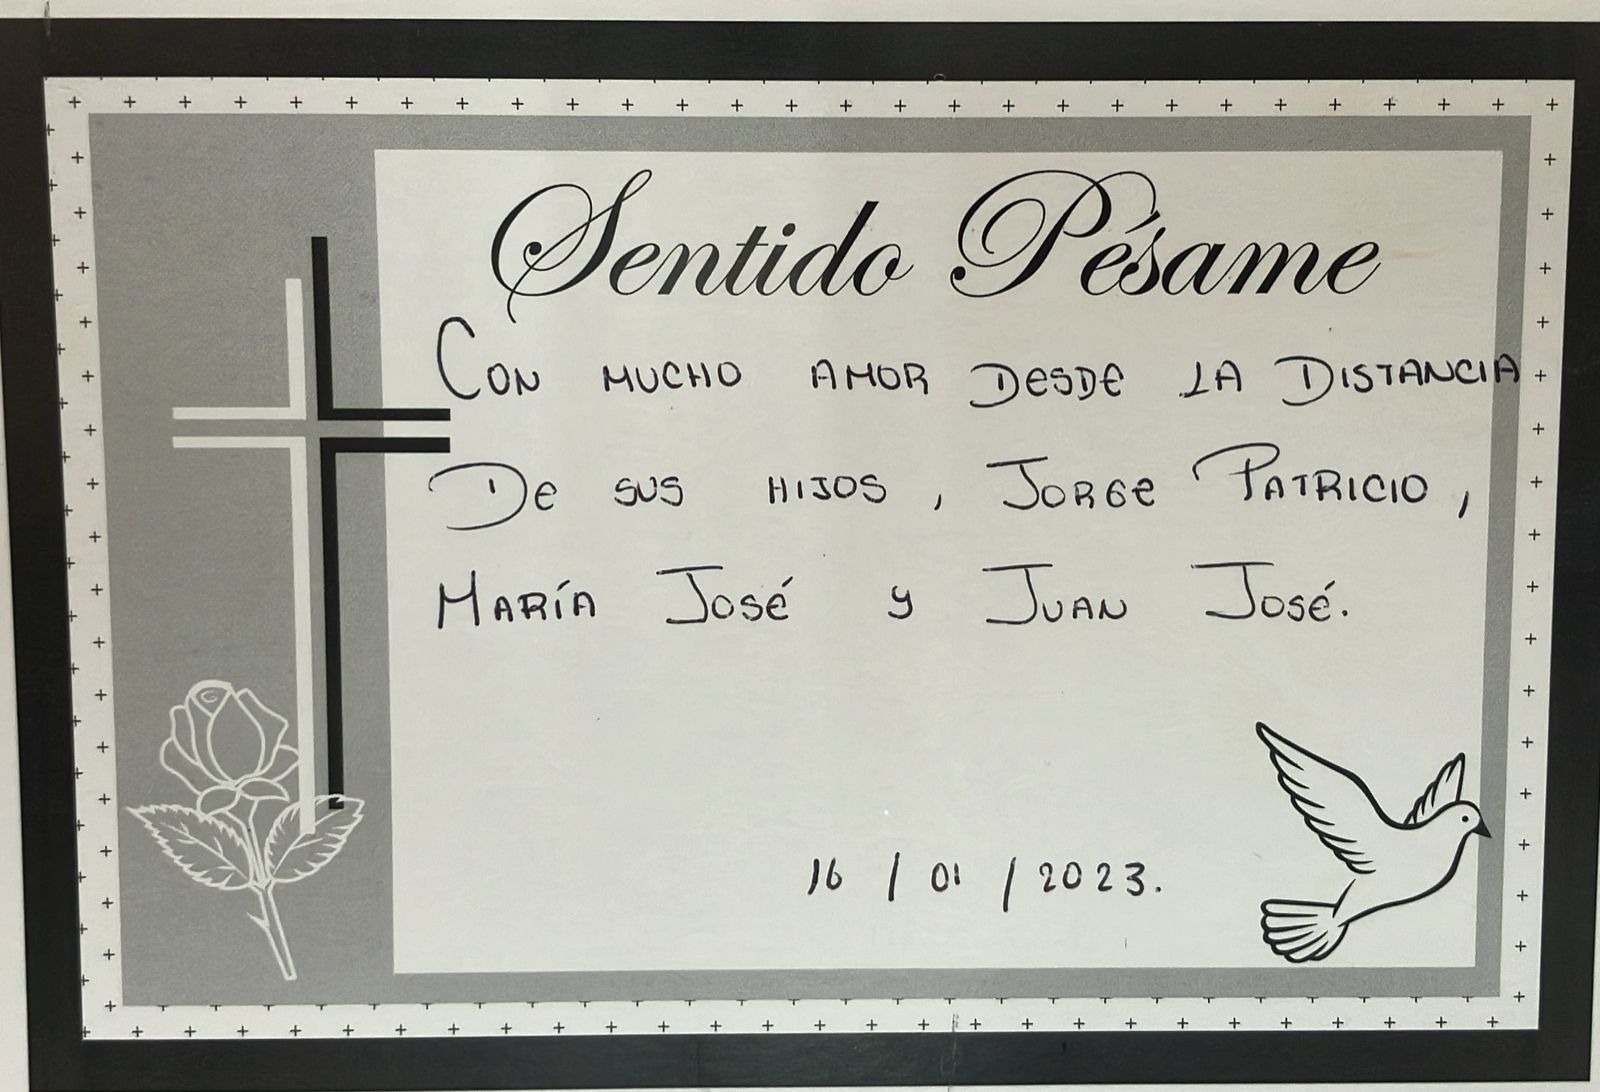 Sentido Pésame
CON MUCHO AMOR DESDE LA DISTANCIA
DE SUS HIJOS, JORGE PATRICIO,
MARÍA JOSÉ y JUAN JOSÉ.
16 / 01 / 2023.